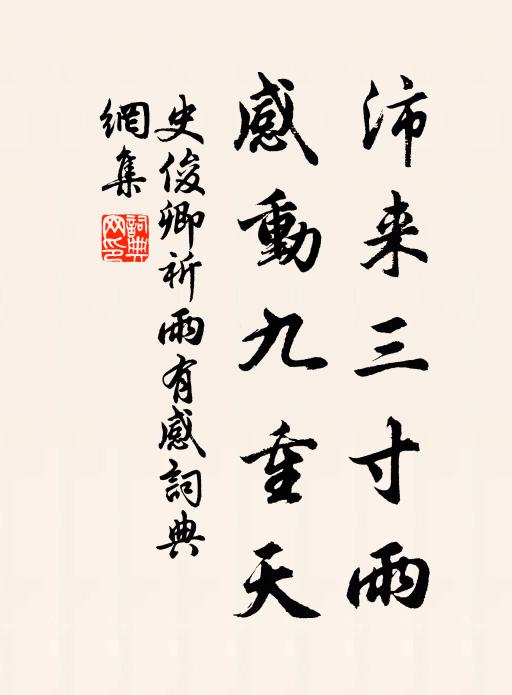 沛来三寸雨
感動九重天
史俊卿祈雨有感詞典
網集
詞典网印